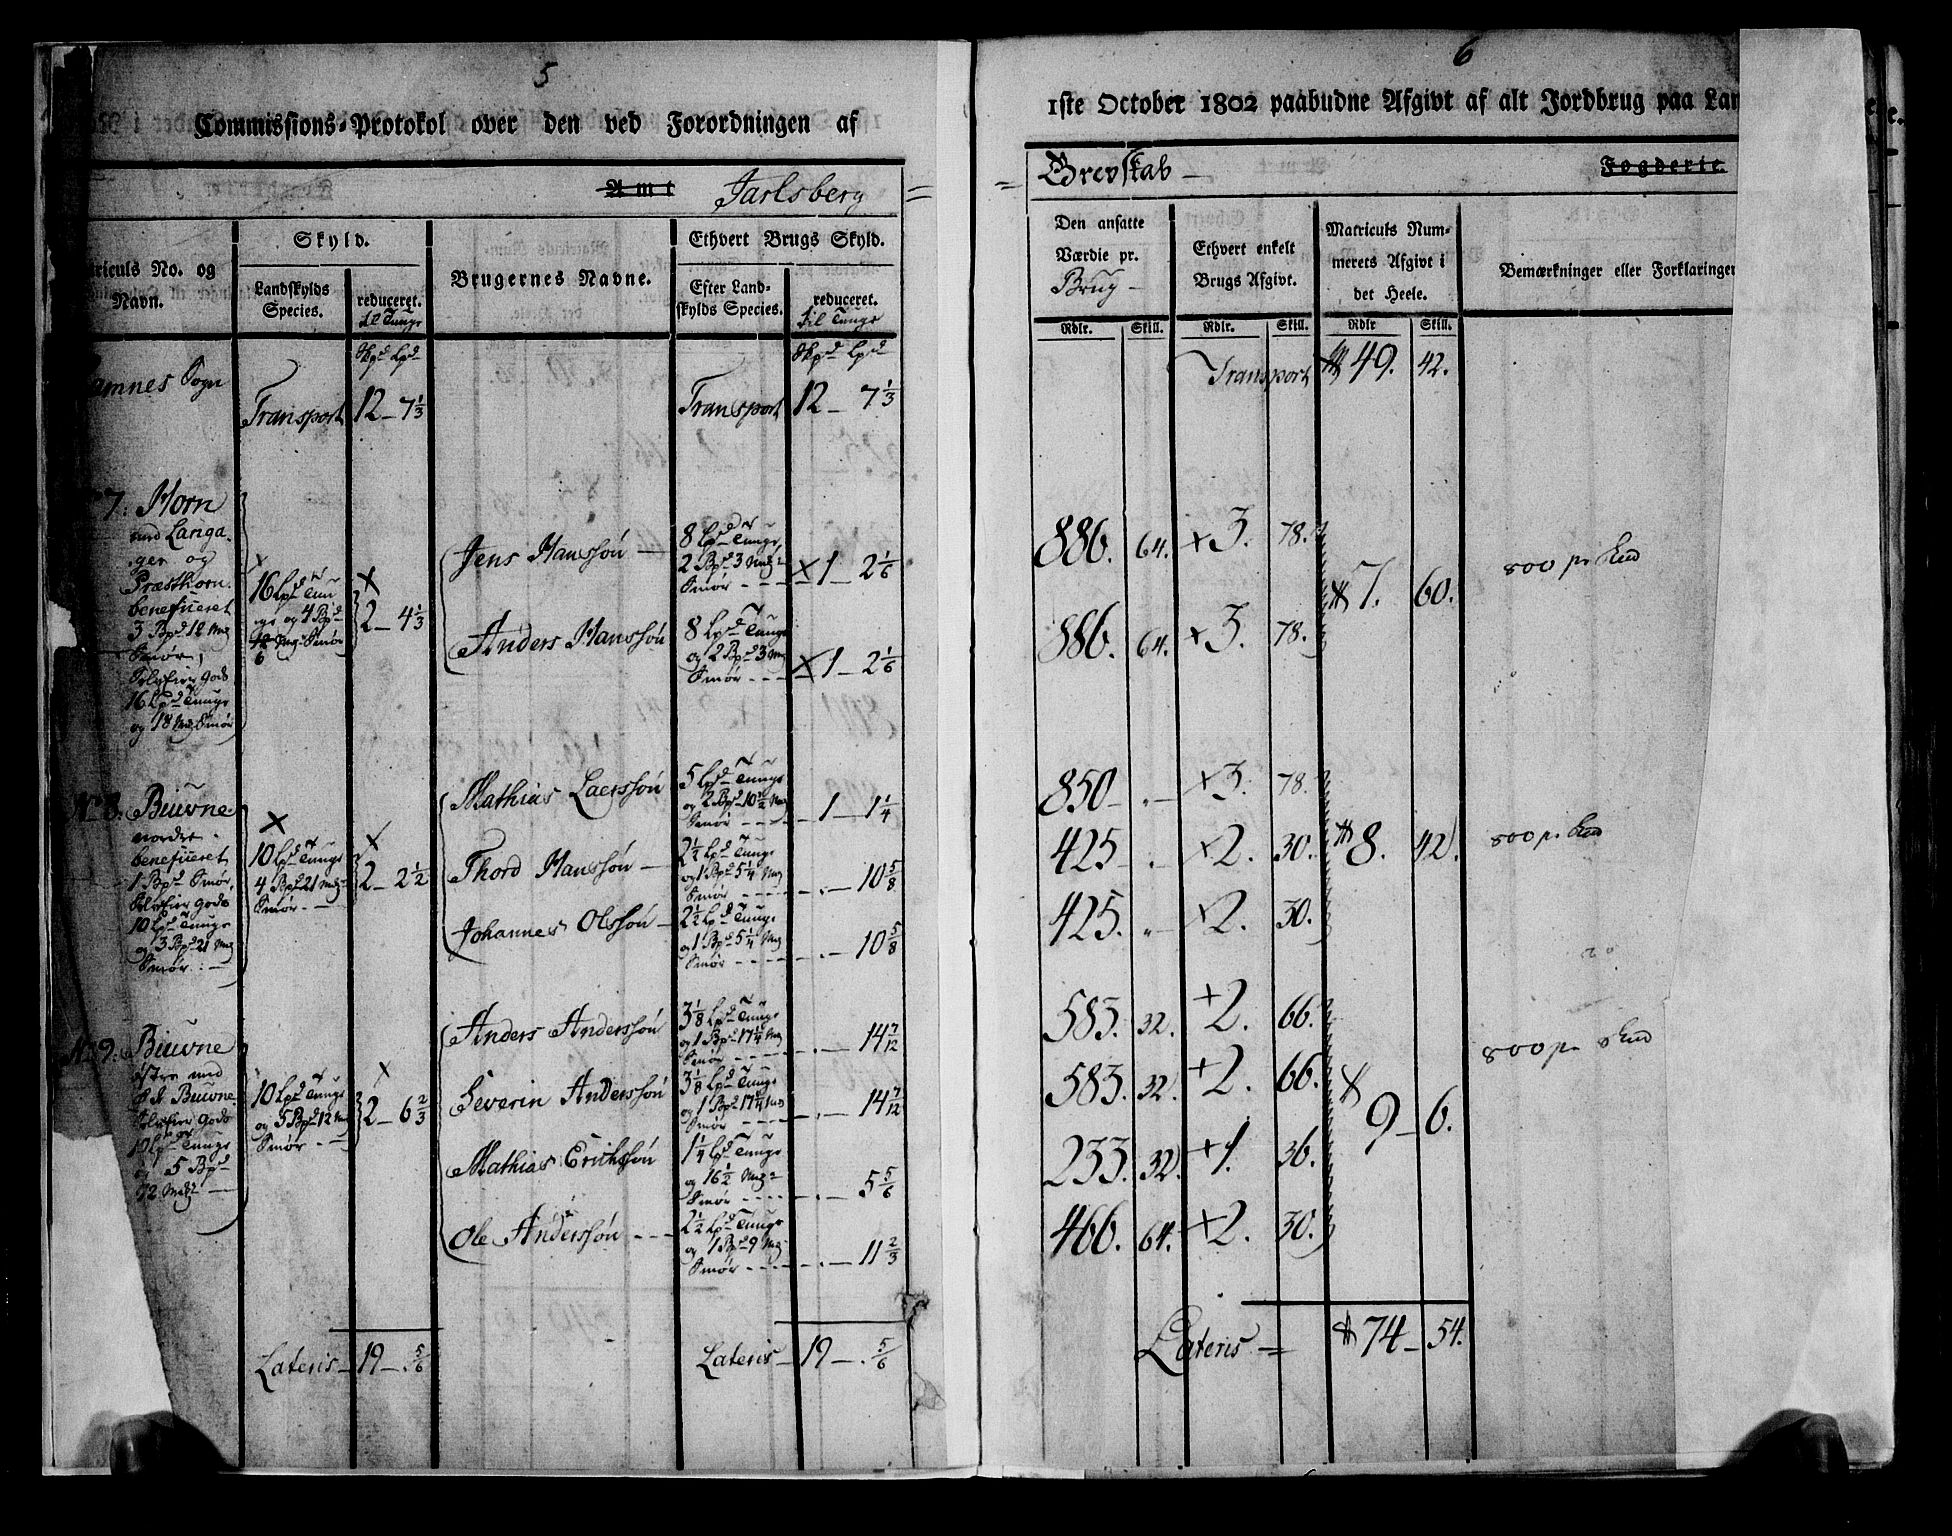 5
Commissions-Protokol over den ved Forordningen af
Amt Jarlsberg =
riculs No. og
Navn.
Skyld.
Landskylds
Species.
reduceret.
til Tunge
Brugernes Navne.
Ethvert Brugs Skyld.
Efter Land-
skylds Species.
reduceret.
til Tunge
Skpd Lpd
Skpd Lpd
amnes Sogn
Transport 12 - 7 1/3
Transport 12 - 7 1/3
7. Horn
med Langa-
ger og
Præsthorn.
beneficeret
3 Bpd 12 Mrk
Smør,
Selveier Gods
16 Lpd Tunge
og 18 Mrk Smør
16 Lpd Tun
ge og 4 Bpd
6 Mrk Smør
2 - 4 1/3
Jens Hanssøn
8 Lpd Tunge
2 Bpd 3 Mrk
Smør
1 - 2 1/6
Anders Hanssøn
8 Lpd Tunge
og 2 Bpd 3 Mrk
Smør
1 - 2 1/6
No 8. Biuvne
nordre
beneficeret
1 Bpd Smør,
Selveier Gods
10 Lpd Tunge
og 3 Bpd 21 Mrk
Smør
10 Lpd Tunge
4 Bpd 21 Mrk
Smør
2 - 2 1/2
Mathias Laerssøn
5 Lpd Tunge
og 2 Bpd 10 1/2 Mrk
Smør
1 - 1 1/4
Thord Hanssøn
2 1/2 Lpd Tunge
og 1 Bpd 5 1/4 Mrk
Smør
10 5/8
Johannes Olssøn
2 1/2 Lpd Tunge
og 1 Bpd 5 1/4 Mrk
Smør
10 5/8
No 9. Biuvne
østre med
Biuvne
Selveier Gods
10 Lpd Tunge
og 5 Bpd
12 Mrk
10 Lpd Tunge
og 5 Bpd 12 Mrk
Smør
2 - 6 2/3
Anders Anderssøn
3 1/8 Lpd Tunge
og 1 Bpd 17 1/4 Mrk
Smør
14 7/12
Severin Anderssøn
3 1/8 Lpd Tunge
og 1 Bpd 17 1/4 Mrk
Smør
14 7/12
Mathias Erichssøn
1 1/4 Lpd Tunge
og 16 1/2 Mrk
Smør
5 5/6
Ole Anderssøn
2 1/2 Lpd Tunge
og 1 Bpd 9 Mrk
Smør
11 2/3
Lateris - 19 - . 5/6
Lateris - 19 - . 5/6
6
1ste October 1802 paabudne Afgivt af alt Jordbrug paa Lan
= Grevskab -
Fogderie.
Den ansatte
Værdie pr.
Brug -
Ethvert enkelt
Brugs Afgivt.
Matriculs Num-
merets Afgivt i
det Heele.
Bemærkninger eller Forklaringer
Rdlr. Skill. Rdlr. Skill. Rdlr Skill.
Transport 49. 42.
886. 64. 3. 78.
7. 60.
800 pr
886. 64. 3. 78.
850 - . - 3. 78.
425 - . 2. 30. 8. 42.
800 pr
425. 2. 30.
583. 32. 2. 66.
800 pr
583. 32. 2. 66.
9 - 6.
233. 32. 1. 36.
466. 64. 2. 30.
Lateris = 74 - 54.